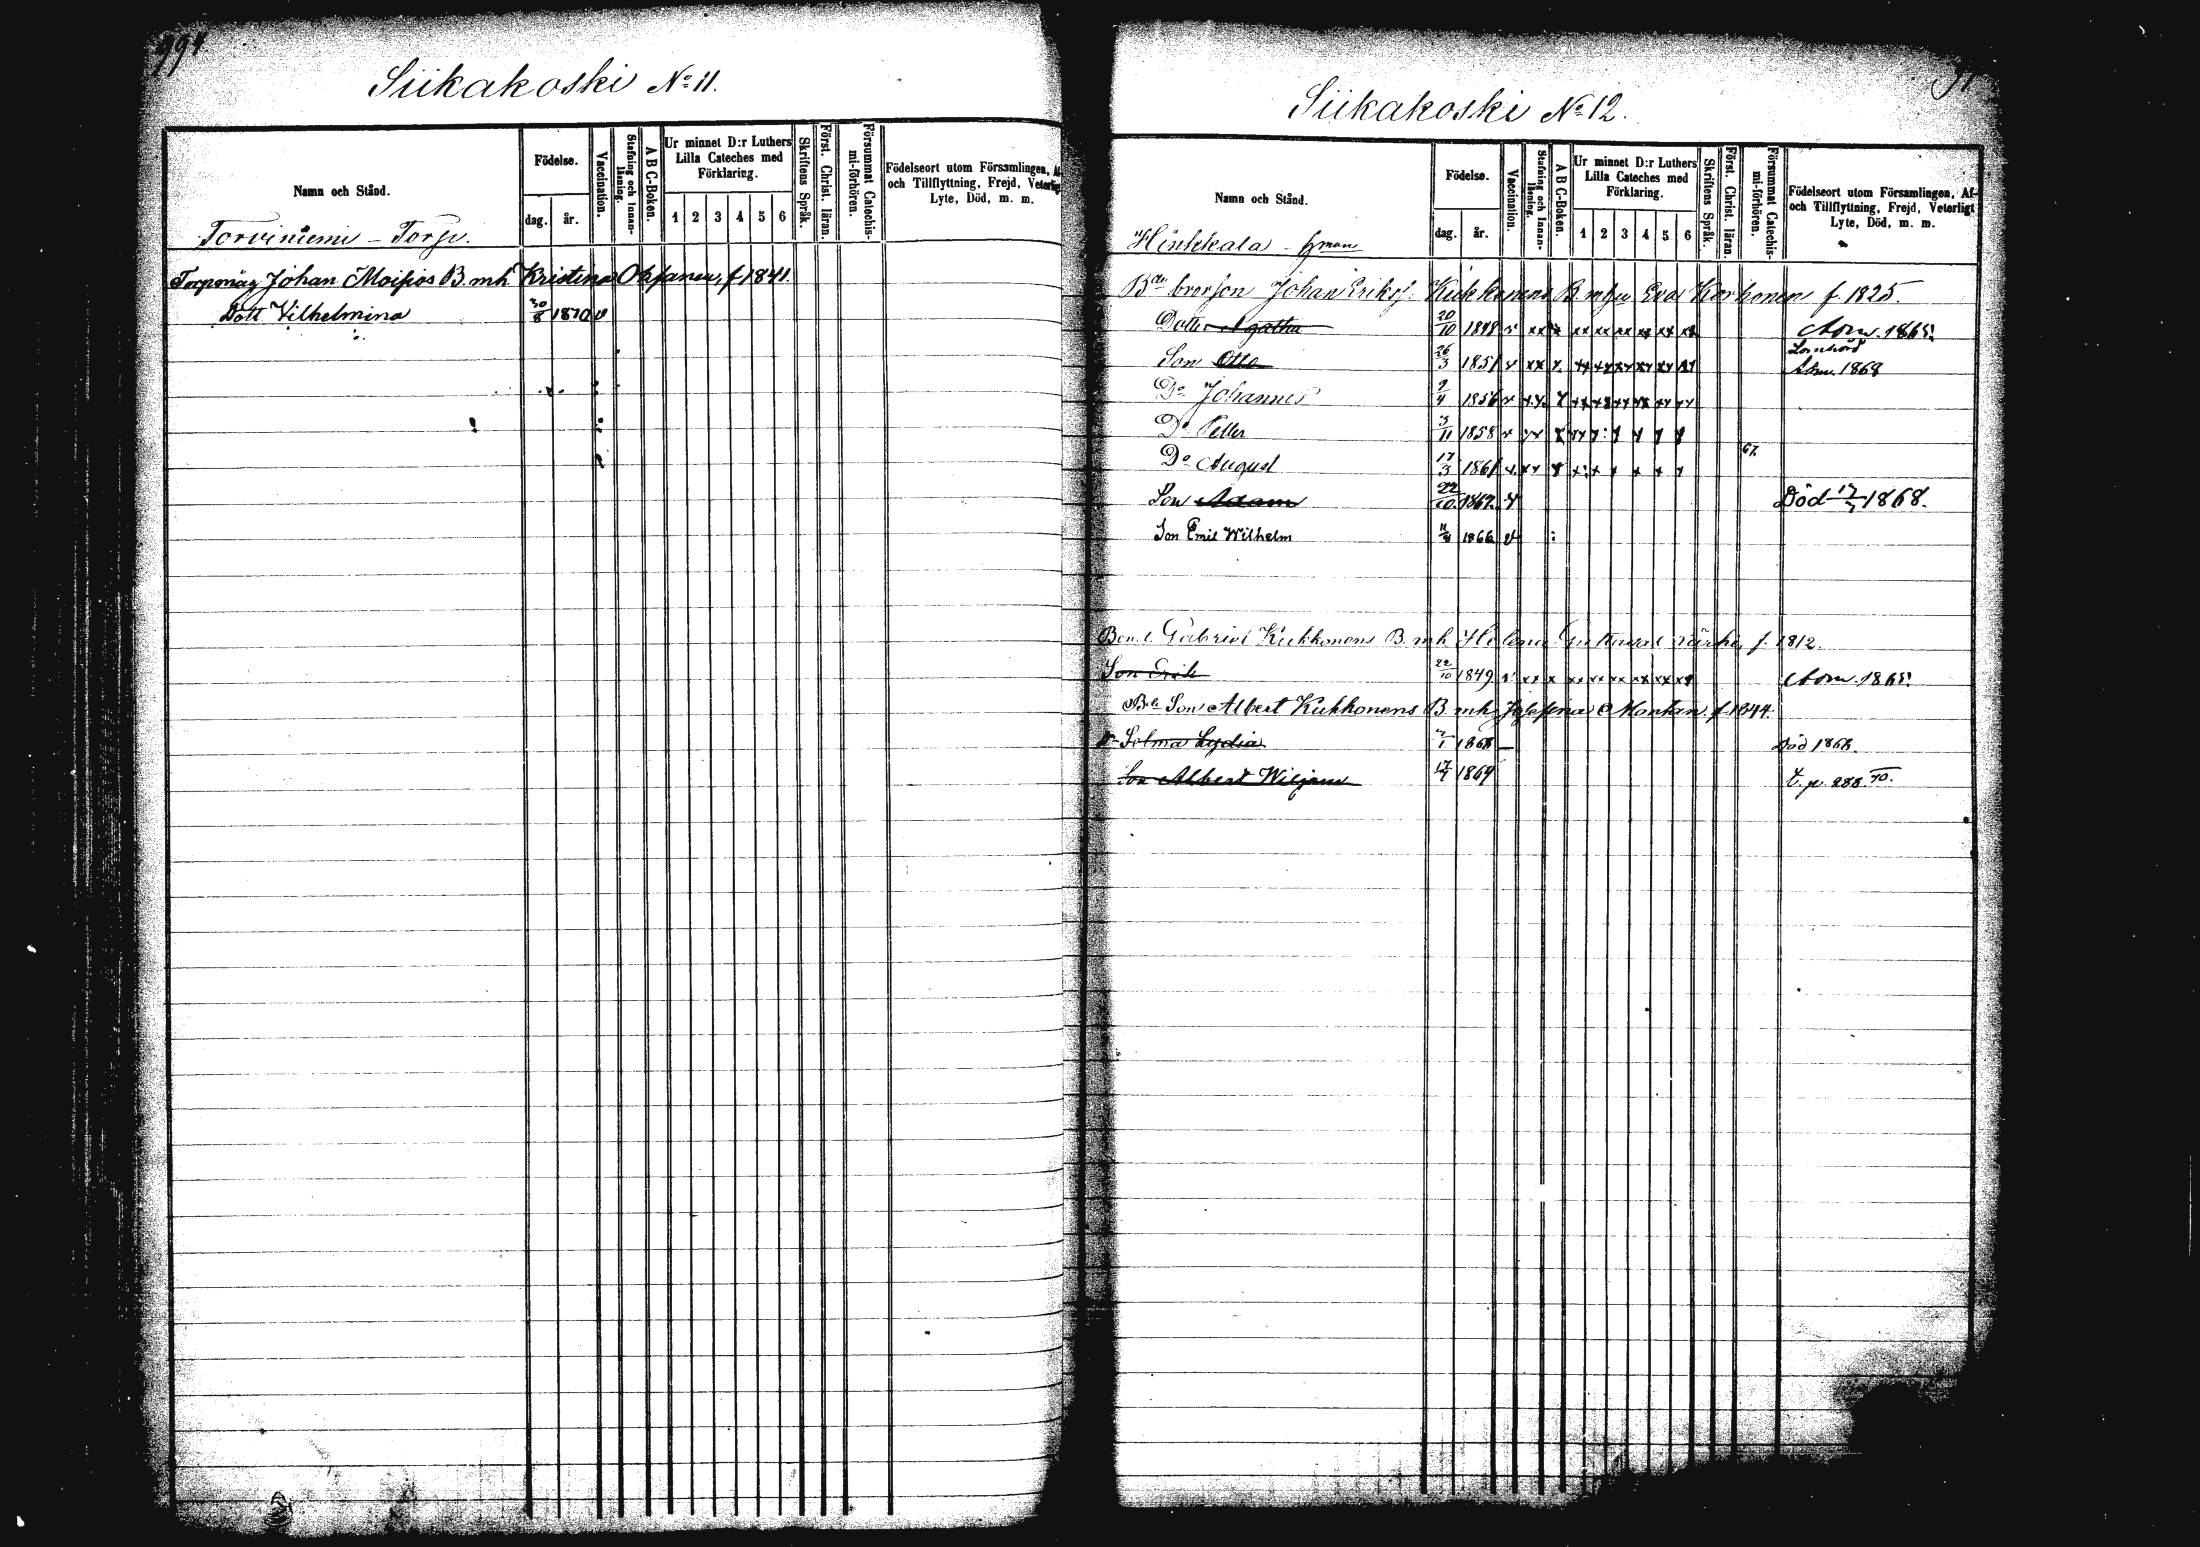 994
Siikakoski No 11.
Namn och Stånd.
Födelse.
dag.
år.
Vaccination.
Stafning och Innan-läsning.
A B C-Boken.
Ur minnet D:r Luthers Lilla Cateches med Förklaring.
1 2 3 4 5 6
Skriftens Språk.
Först. Christ. läran.
Försummat Catechis-mi-förhören.
Födelseort utom Församlingen, Af-
och Tillflyttning, Frejd, Veterligt
Lyte, Död, m. m.
Torviniemi - Torp.
Johan Moisios B. mh Kristina f 1841.
Dott Vilhelmina 30/8 1870 v
Siikakoski No 12.
Namn och Stånd.
Födelse.
dag.
år.
Vaccination.
Stafning och Innan-läsning.
A B C-Boken.
Ur minnet D:r Luthers Lilla Cateches med Förklaring.
1 2 3 4 5 6
Skriftens Språk.
Först. Christ. läran.
Försummat Catechis-mi-förhören.
Födelseort utom Församlingen, Af-
och Tillflyttning, Frejd, Veterligt
Lyte, Död, m. m.
Hinkkala
brorson Johan Eriks. Kukkonens B. mhu Eva Korhonen f. 1825.
Dotter Agatha 20/10 1848 v xx x xx xx xx xx xx xx Adm. 1865.
Son Otto 26/3 1851 v xx x xx xx xx xx xx xx Adm. 1868
Do Johannes 9/4 1856 v xx x xx xx xx xx xx xx
Do Petter 3/11 1858 v xx x xx x x x x x
Do August 17/3 1861 v xx x x x x x x x 67.
Son Adam 22/10 1862 v Död 1868.
Son Emil Wilhelm 1866 v
Gabriel Kukkonens B. mh Helena f. 1812.
Son Erik 22/10 1849 v xx x xx xx xx xx xx xx Adm. 1865.
Son Albert Kukkonens B mh Josefina Montan f. 1844.
Selma Lydia 1868 — Död 1868.
Son Albert Wiljam 1869 t. p. 288. 70.